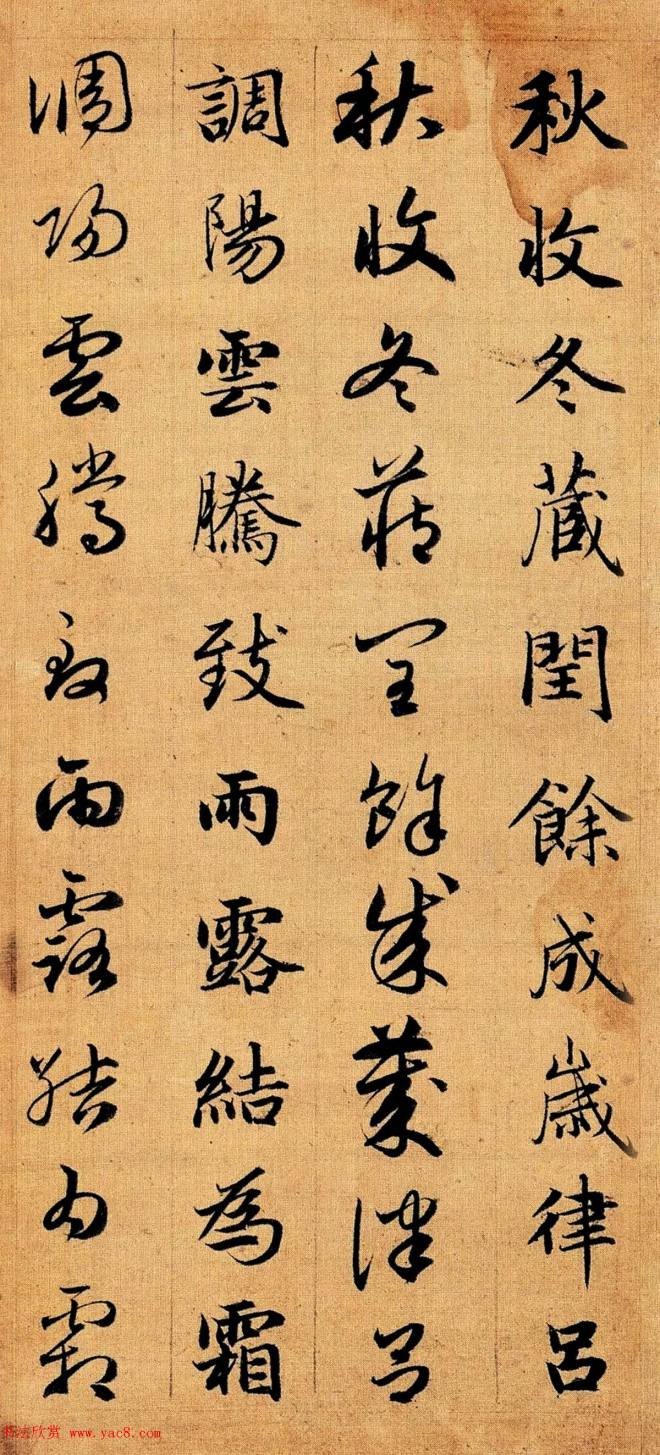 秋收冬蔵閏餘成歲律呂
秋收冬蔵閏餘成歲律呂
調陽雲騰致雨露結為霜
調陽雲騰致雨露結為霜
书法欣赏 www.yac8.com